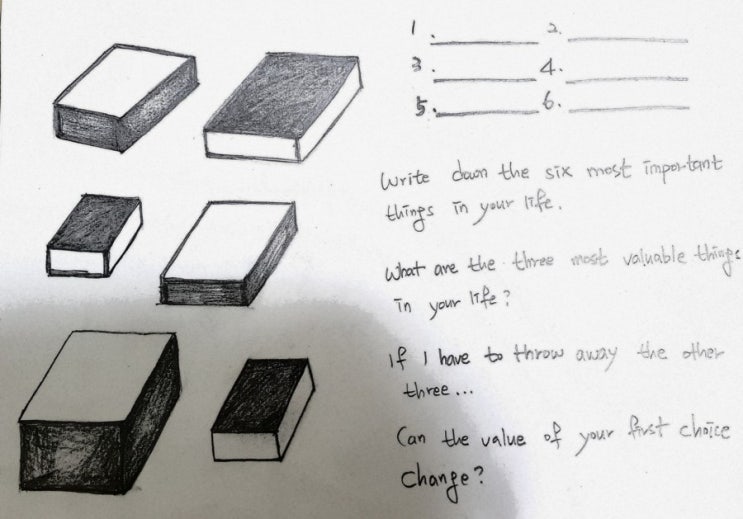 1. 2.
3. 4.
5. 6.
Write down the six most important
things in your life.
What are the three most valuable things
in your life?
If I have to throw away the other
three...
Can the value of your first choice
change?